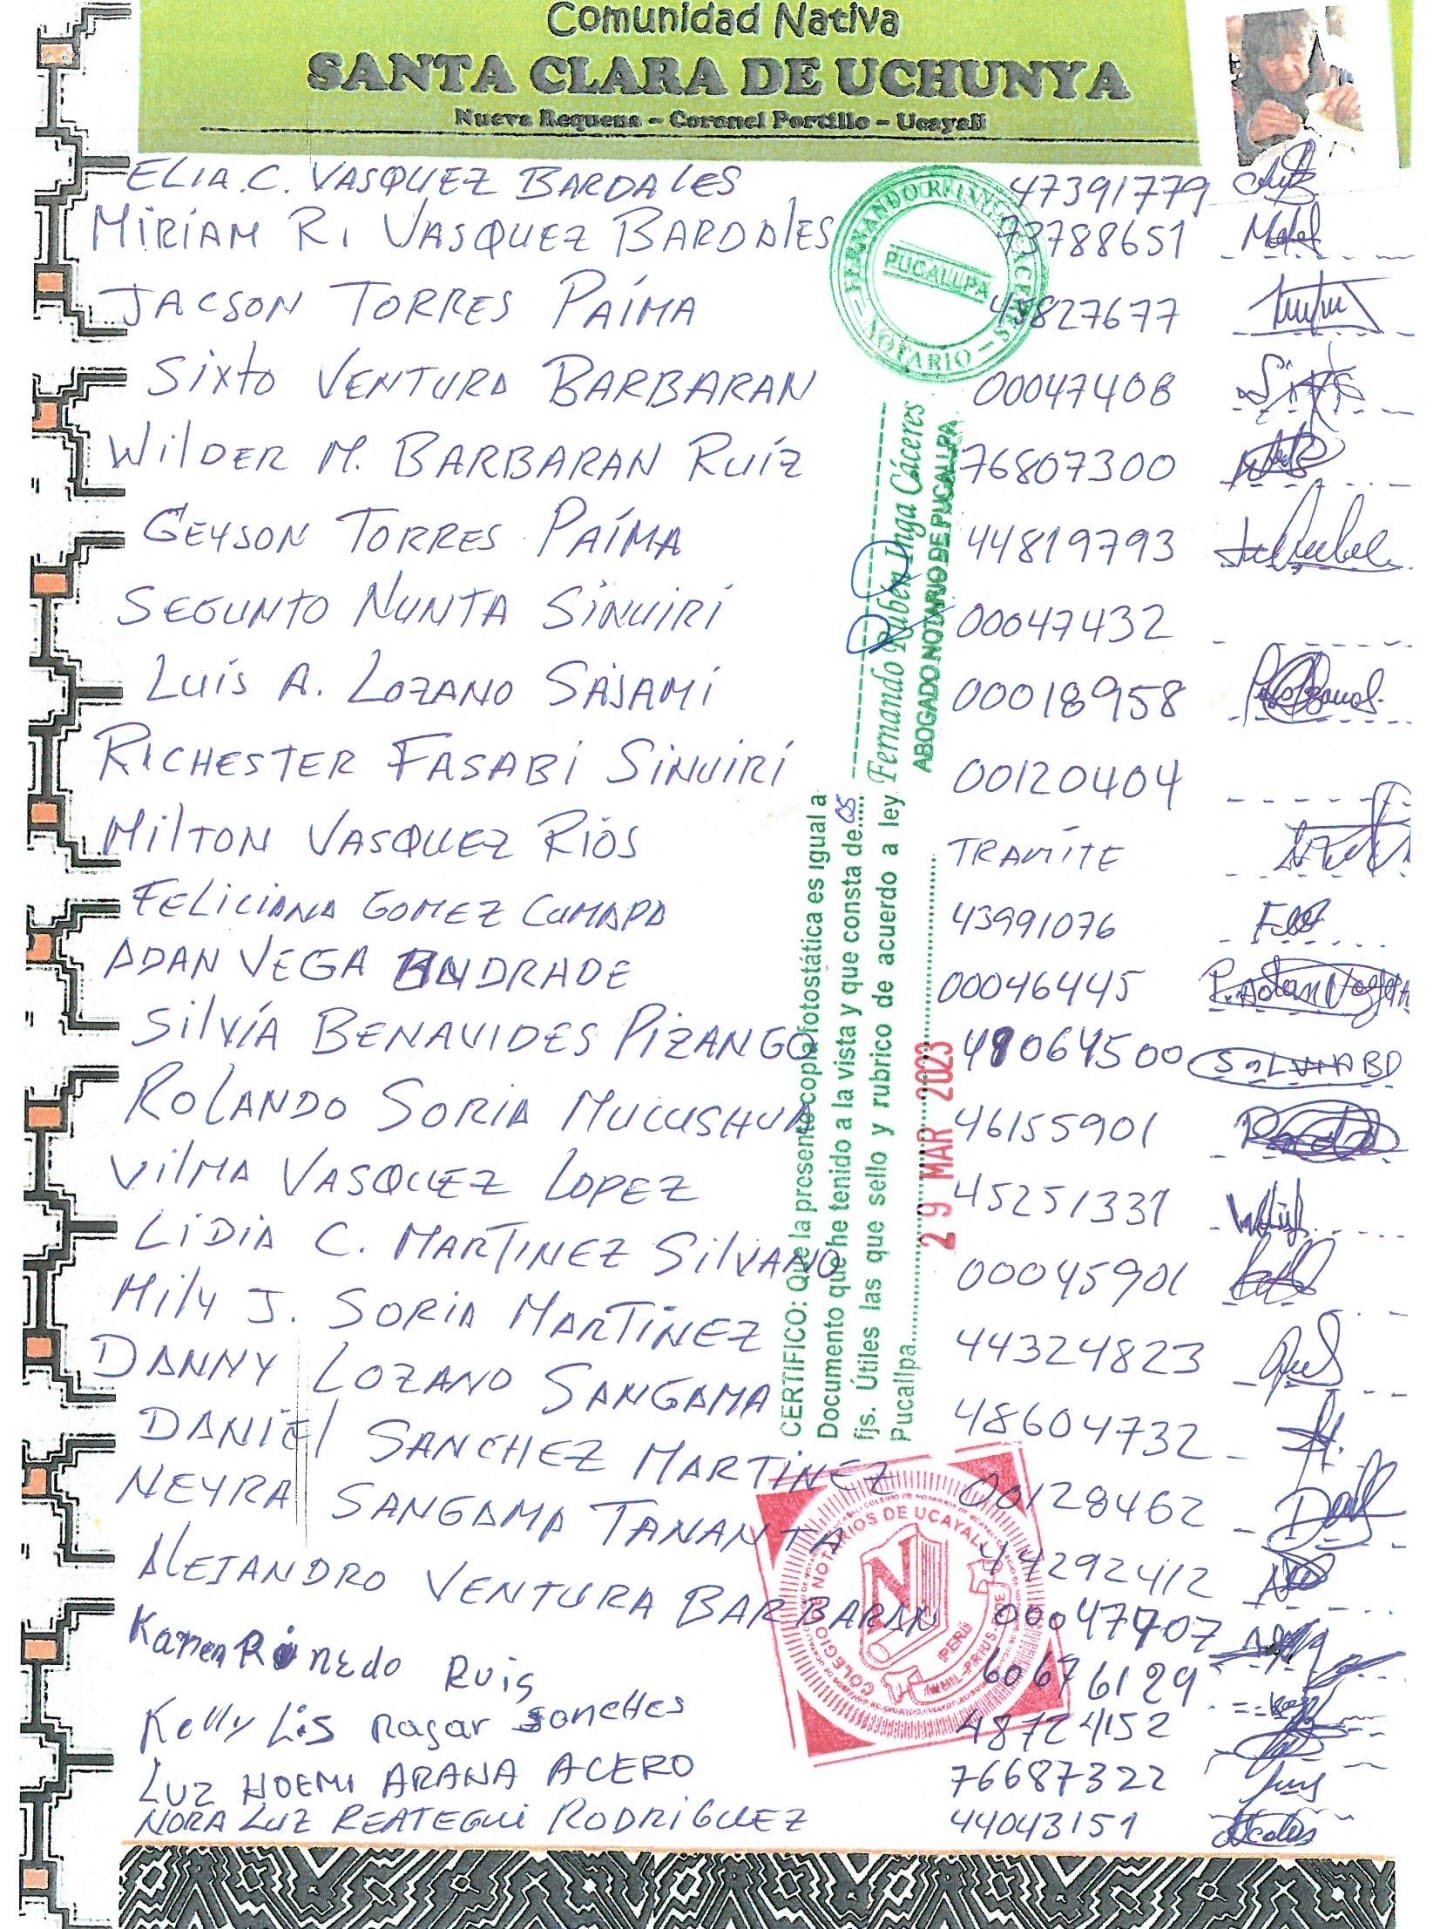 Comunidad Nativa
SANTA CLARA DE UCHUNYA
Nueva Requena – Coronel Portillo – Ucayali
ELIA.C. VASQUEZ BARDALES 47391779
MIRIAM R. VASQUEZ BARDALES 73788651
JACSON TORRES PAÍMA 45827677
SIXTO VENTURA BARBARAN 00047408
WILDER M. BARBARAN RUÍZ 76807300
GEYSON TORRES PAÍMA 44819793
SEGUNTO NUNTA SINUIRI 00047432
LUÍS A. LOZANO SAJAMÍ 00018958
RICHESTER FASABI SINUIRÍ 00120404
MILTON VASQUEZ RIOS TRAMITE
FELICIANA GOMEZ CUMAPA 43991076
ADAN VEGA ANDRADE 00046445
SILVÍA BENAVIDES PIZANGO 48064500 SILVIA BD
ROLANDO SORIA MUCUSHUA 46155901
VILMA VASQUEZ LOPEZ 45251331
LIDIA C. MARTINEZ SILVANO 00045901
MILY J. SORIA MARTÍNEZ 44324823
DANNY LOZANO SANGAMA 48604732
DANIEL SANCHEZ MARTINEZ 00128462
NEYRA SANGAMA TANANTA 44292412
ALEJANDRO VENTURA BARBARAN 00047707
Karen Rinedo Ruis 60676129
Kelly Lis Nagar Sanches 48724152
LUZ NOEMI ARANA ACERO 76687322
NORA LUZ REATEGUI RODRIGUEZ 44043151
PUCALLPA
NOTARIO
CERTIFICO: Que la presente copia fotostática es igual a
Documento que he tenido a la vista y que consta de 05
fjs. Útiles las que sello y rubrico de acuerdo a ley
Pucallpa
29 MAR 2023
Fernando Rubén Inga Cáceres
ABOGADO NOTARIO DE PUCALLPA
COLEGIO DE NOTARIOS DE UCAYALI
N
PERÚ